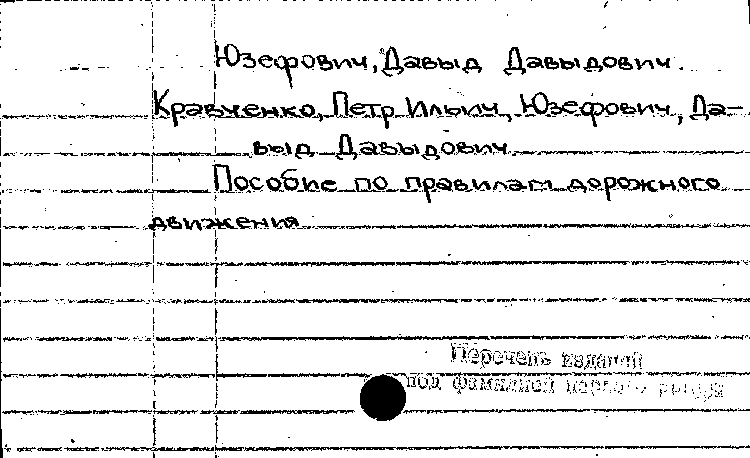 Юзефович, Давыд Давыдович.
Кравченко, Петр Ильич, Юзефович, Да-
выд Давыдович
Пособие по правилам дорожного
движения
Перечень изданий
под фамилией первого автора